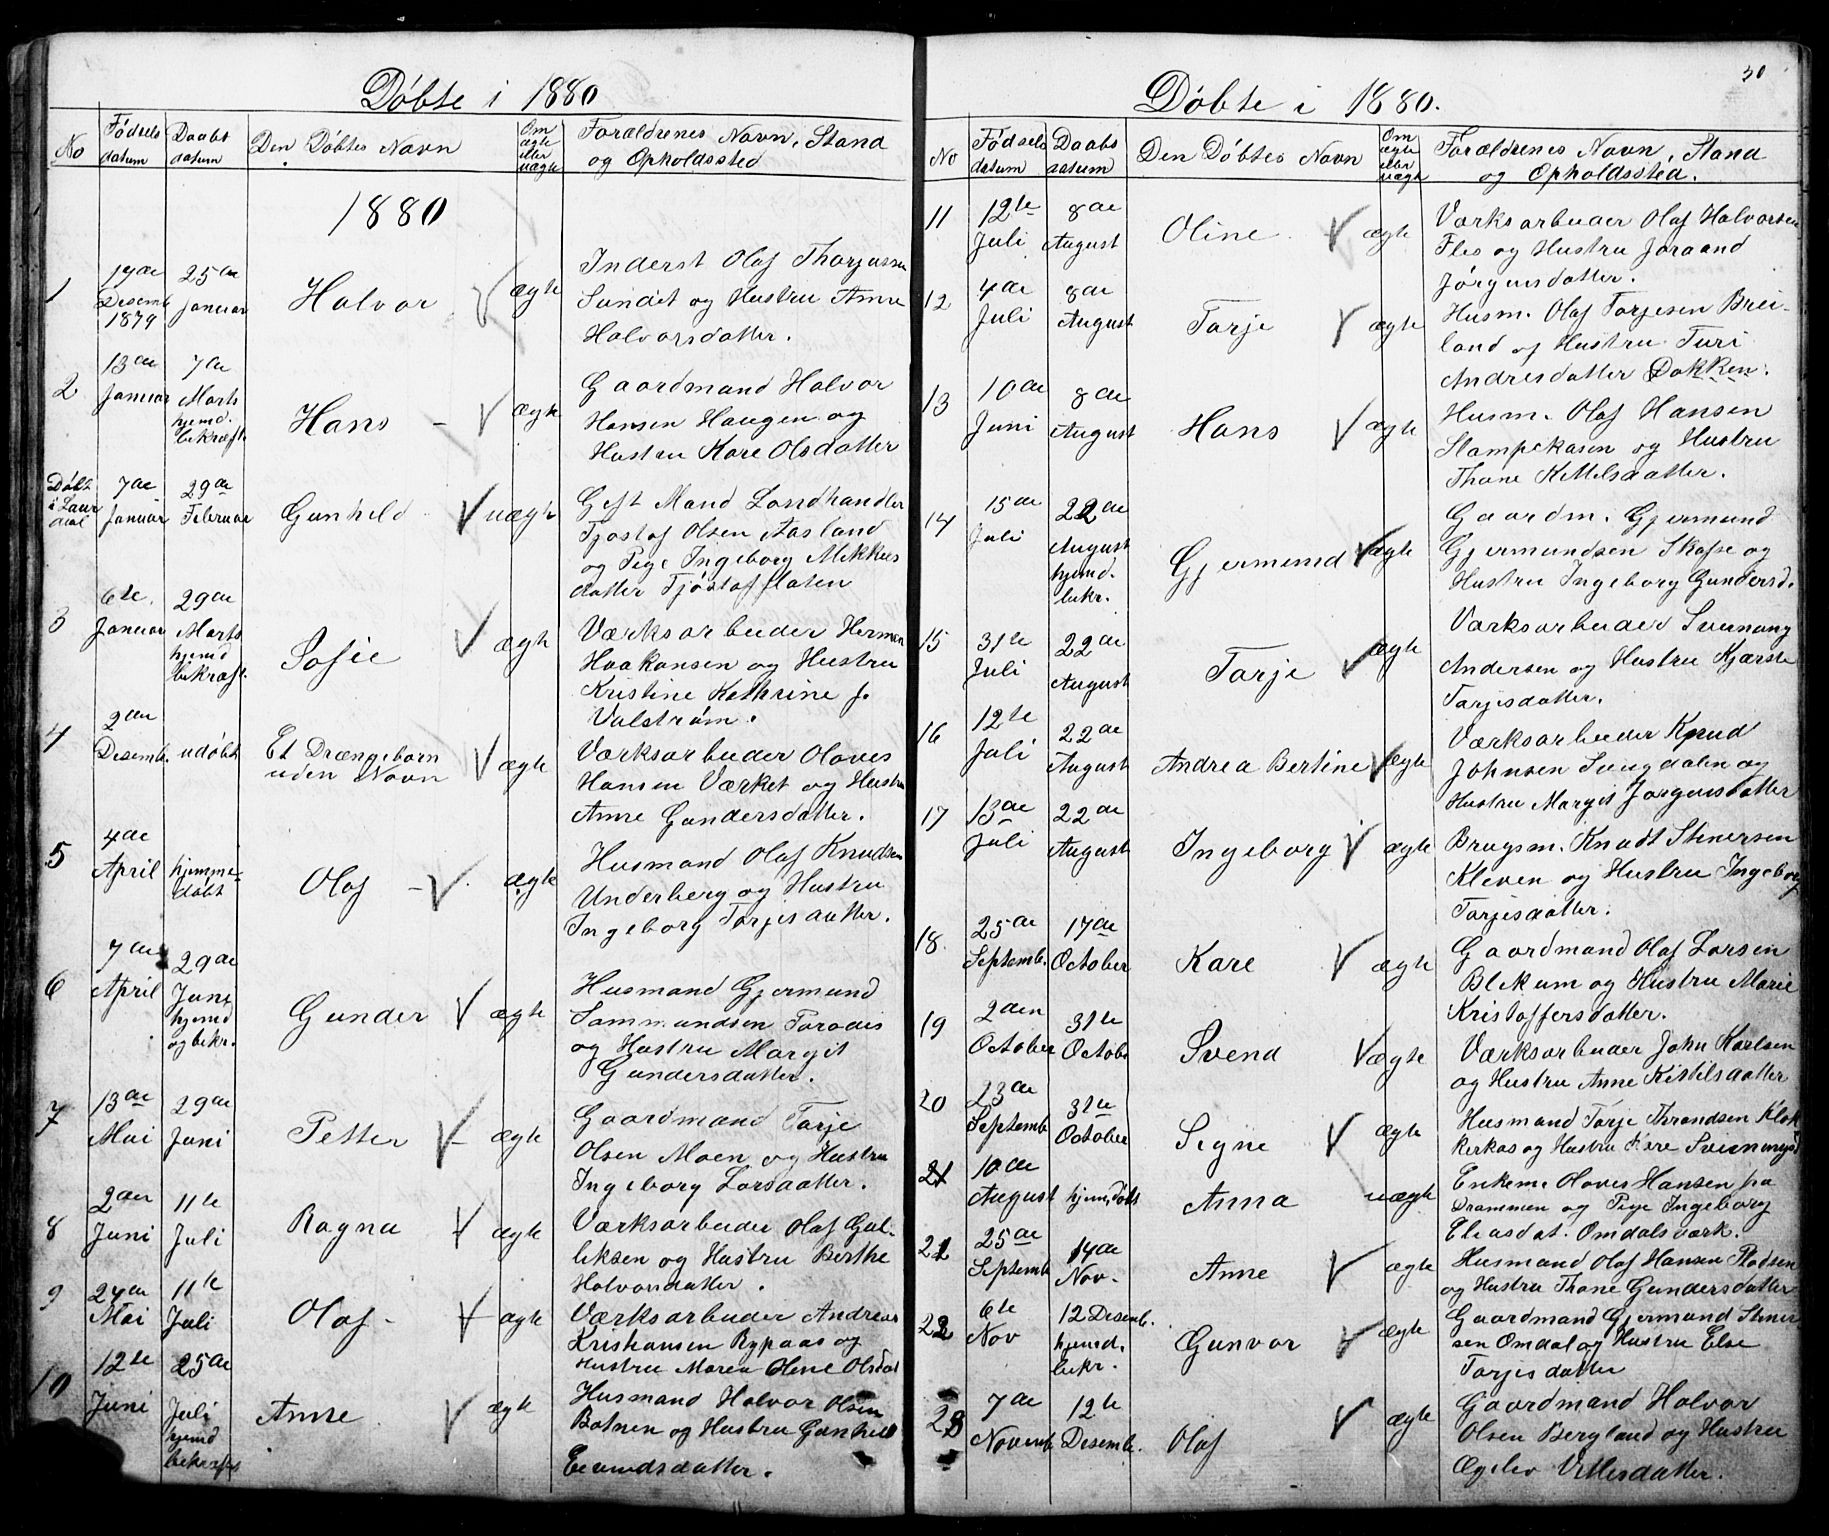 Döbte i 1880
No
Födsels datum
Daabs datum
Den Döbtes Navn
Om ægte eller uægte
Forældrenes Navn, Stand og Opholdssted
1880
1
19de Desemb 1879
25de Januar
Halvor
ægte
Inderst Olaf Thorjussen
Sundet og Hustru Anne
Halvorsdatter.
2
13de Januar
7de Marts hjemd. bekræft.
Hans
ægte
Gaardmand Halvor
Hansen Haugen og
Hustru Kare Olsdatter
Döbt i Laurdal
7de Januar
29de Februar
Gunhild
uægte
Gift Mand Landhandler
Tjostof Olsen Aasland
og Pige Ingeborg Mikkels
datter Tjöstofflaten
3
6te Januar
29de Marts hjemd bekræft.
Sofie
ægte
Værksarbeider Herman
Haakonsen og Hustru
Kristine Kathrine f.
Valström.
4
2den Desemb.
udöbt
Et Drængebarn
uden Navn
ægte
Værksarbeider Olaves
Hansen Værket og Hustru
Anne Gundersdatter.
5
4de April
hjemme-
döbt
Olaf
ægte
Husmand Olaf Knudsen
Underberg og Hustru
Ingeborg Tarjeisdatter.
6
7de April
29de Juni hjemd og bekr.
Gunder
ægte
Husmand Gjermund
Sammundsen Paradis
og Hustru Margit
Gundersdatter.
7
13de Mai
29de Juni
Petter
ægte
Gaardmand Tarje
Olsen Moen og Hustru
Ingeborg Larsdatter.
8
2den Juni
11te Juli
Ragna
ægte
Værksarbeider Olaf Gul-
liksen og Hustru Berthe
Halvorsdatter.
9
24de Mai
11te Juli
Olaf
ægte
Værksarbeider Andreas
Kristiansen Rypaas og
Hustru Maren Olene Olsdat
10
12te Juni
25de Juli hjemd bekræft
Anne
ægte
Husmand Halvor Olsen
Botnen og Hustru Gunhild
Eivindsdatter.
30
Döbte i 1880.
No
Födsels datum
Daabs datum
Den Döbtes Navn
Om ægte eller uægte
Forældrenes Navn, Stand
og Opholdssted.
11
12te Juli
8de August
Oline
ægte
Værksarbeider Olaf Halvorsen
Fles og Hustru Joraand
Jörgensdatter.
12
4de Juli
8de August
Tarje
ægte
Husm. Olaf Tarjesen Brei-
land og Hustru Turi
Andresdatter Dokken.
13
10de Juni
8de August
Hans
ægte
Husm. Olaf Hansen
Stampekasen og Hustru
Thone Kittelsdatter.
14
15de Juli
22de August hjemd. bekr.
Gjermund
ægte
Gaardm. Gjermund
Gjermundsen Skafse og
Hustru Ingeborg Gundersd.
15
31te Juli
22de August
Tarje
ægte
Værksarbeider Svenung
Andersen og Hustru Kjærste
Tarjeisdatter.
16
12te Juli
22de August
Andrea Bertine
ægte
Værksarbeider Knud
Johnsen Songdalen og
Hustru Margit Jörgensdatter
17
13de Juli
22de August
Ingeborg
ægte
Brugsm. Knudt Stenersen
Kleven og Hustru Ingeborg
Tarjeisdatter.
18.
25de Septemb.
17de October
Kare
ægte
Gaardmand Olaf Larsen
Blekum og Hustru Marie
Kristoffersdatter.
19
2den October
31te Octobe
Svend
ægte
Værksarbeider John Karlsen
og Hustru Anne Kittilsdatter
20
23de Septemb
31te October
Signe
ægte
Husmand Tarje Throndsen Klok
kerkas og Hustru Kare Sveinungsd
21
10de August
hjemdöbt
Anna
uægte
Enkem. Olaves Hansen fra
Drammen og Pige Ingeborg
Eliasdat. Omdalsværk.
21
25de Septemb
14de Nov.
Anne
ægte
Husmand Olaf Hansen Flodsen
og Hustru Thone Gundersdatter
22
6te Nov
12 Desemb. hjemd. bekr.
Gunvor
ægte
Gaardmand Gjermund Stener
sen Omdal og Hustru Else
Tarjeisdatter
23
7de Novemb
12te Desemb.
Olaf
ægte
Gaardmand Halvor
Olsen Bergland og Hustru
Egeleiv Vetlesdatter.